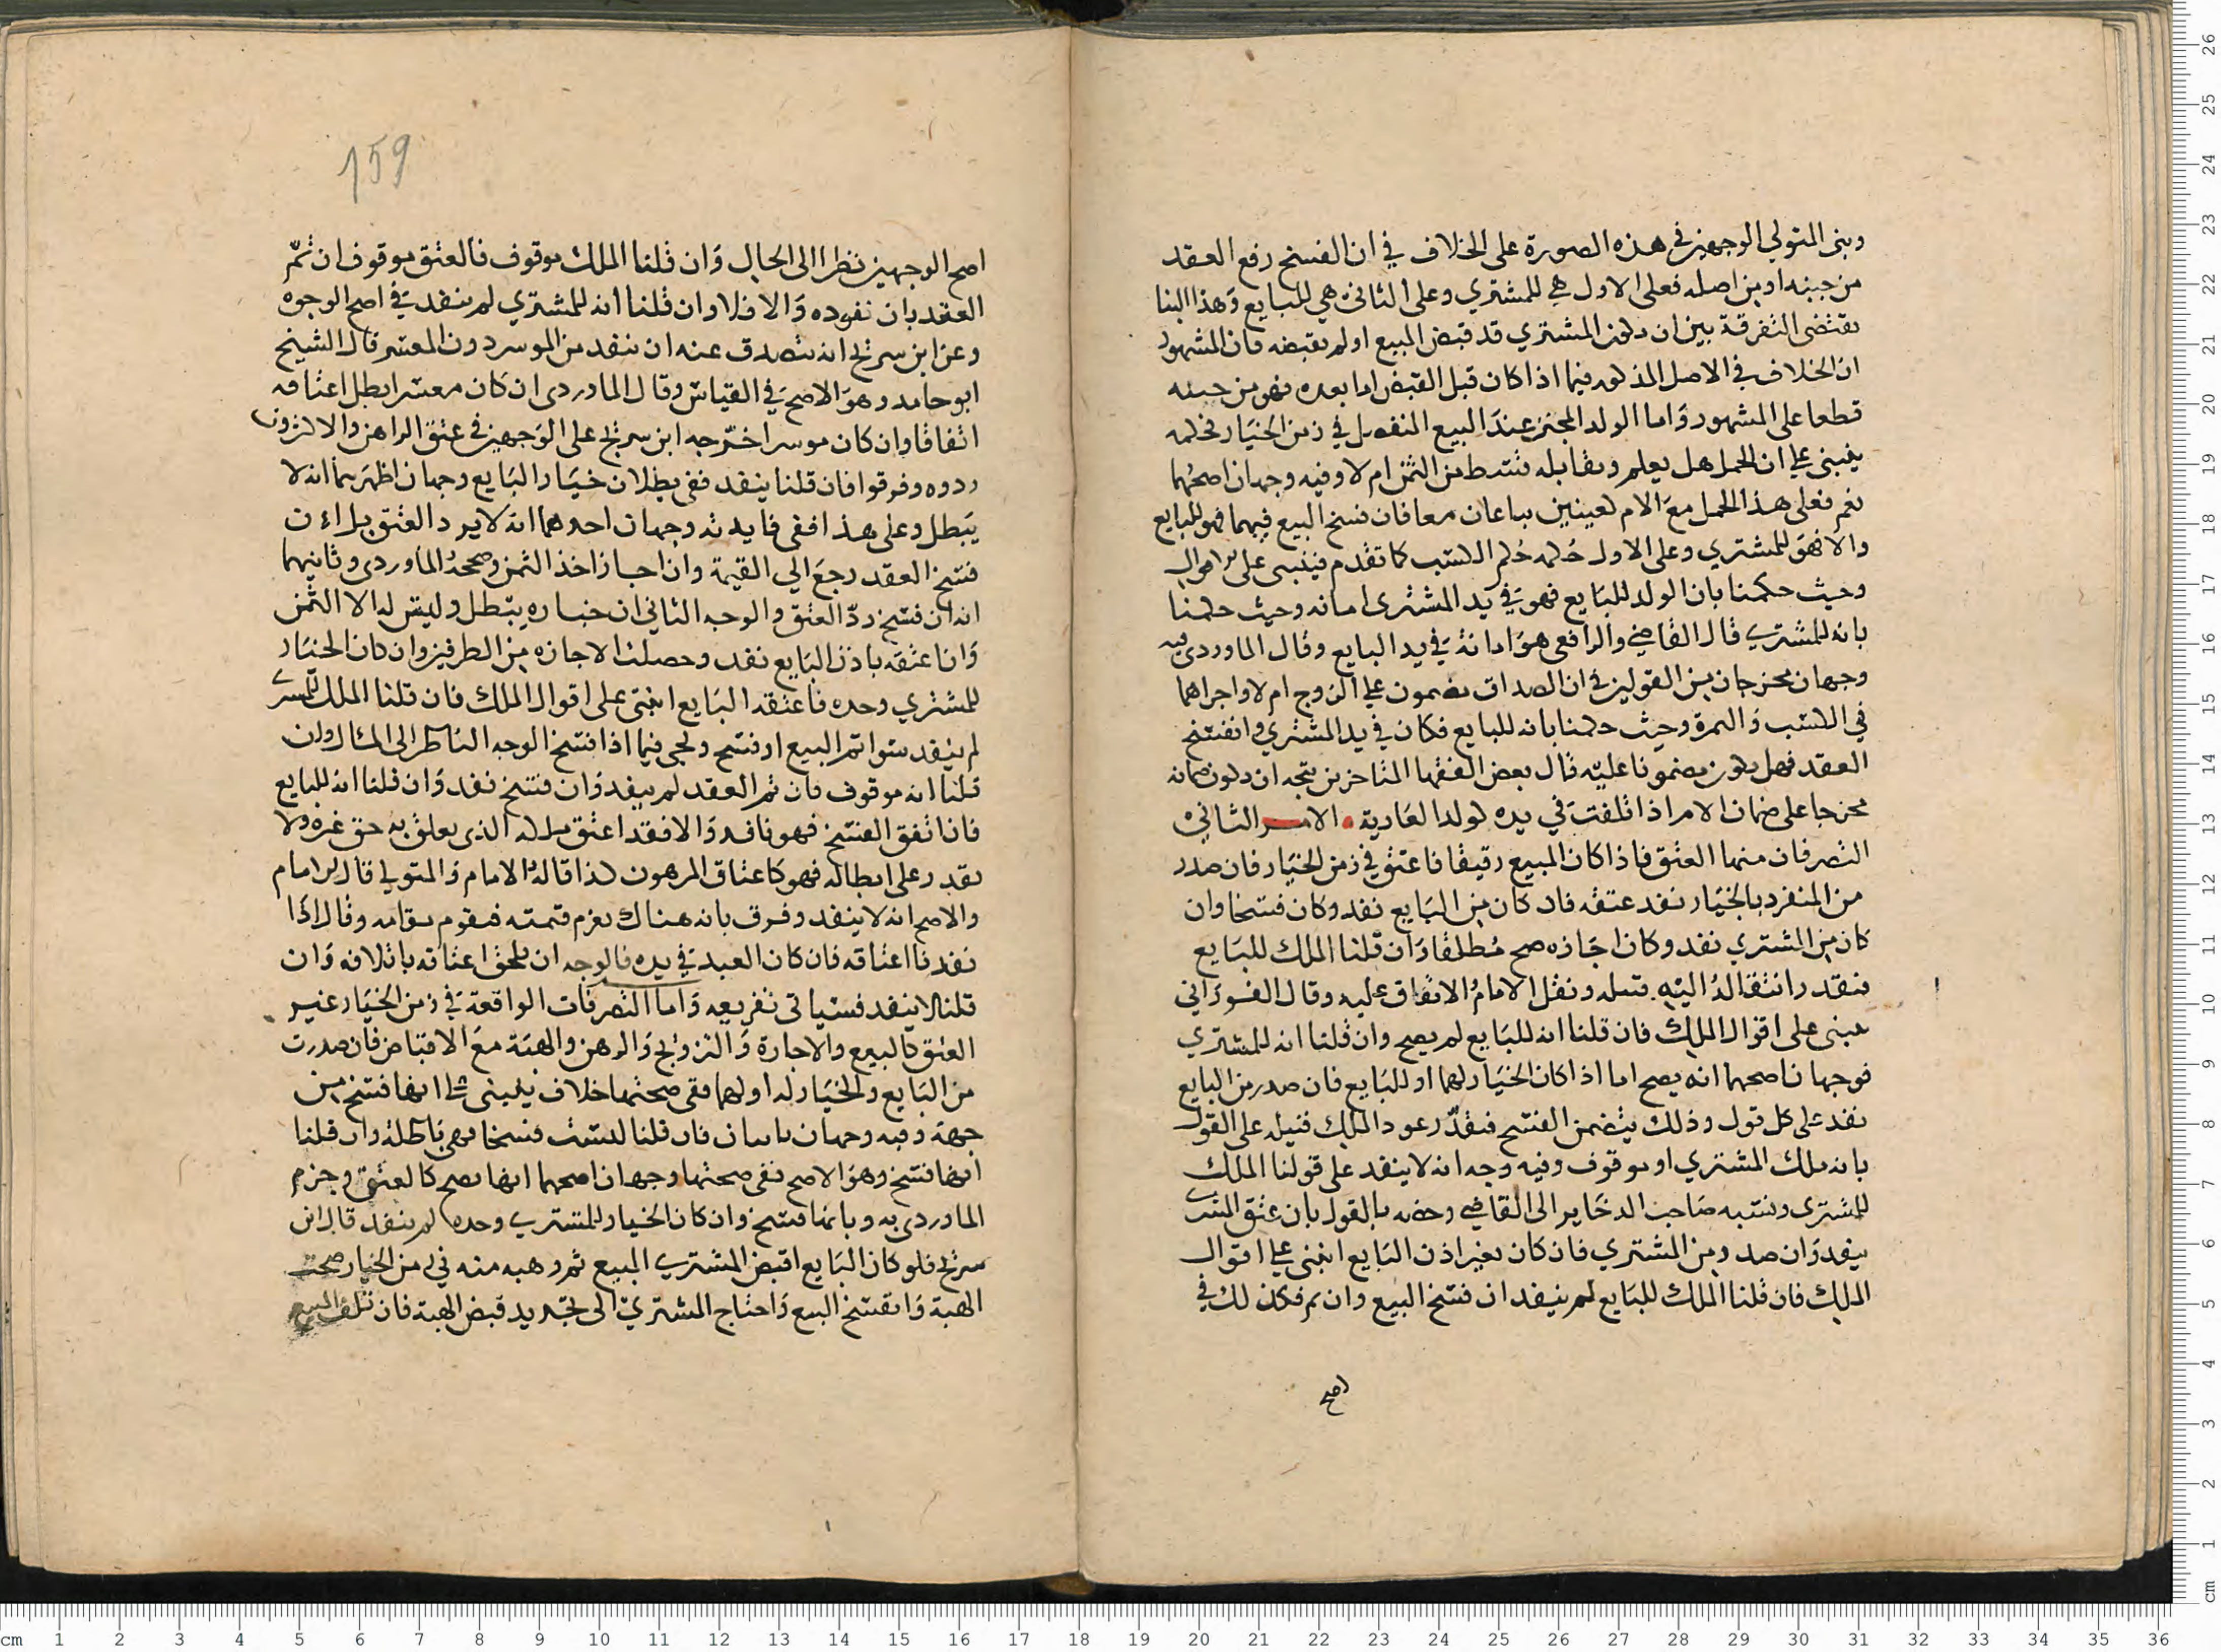 وبنى المتولي الوجهين في هذه الصورة على الخلاف في ان الفسخ رفع العقد
من حينه او من اصله فعلى الاول هي للمشتري وعلى الثاني هي للبايع وهذا البنا
يقتضى التفرقة بين ان يكون المشتري قد قبض المبيع او لم يقبضه فان المشهور
ان الخلاف في الاصل المذكور فيما اذا كان قبل القبض اما بعده فهو من حينه
قطعا على المشهور واما الولد المجتن عند البيع المنفصل في زمن الخيار فحكمه
ينبني على ان الحمل هل يعلم ويقابله قسط من الثمن ام لا وفيه وجهان اصحهما
نعم فعلى هذا الحمل مع الام كعينين بيعا معا فان فسخ البيع فيهما فهو للبايع
والا فهو للمشتري وعلى الاول حكمه حكم الكسب كما تقدم فينبنى على الاقوال
وحيث حكمنا بان الولد للبايع فهو في يد المشترى امانه وحيث حكمنا
بانه للمشتري قال القاضي والرافعي هو امانة في يد البايع وقال الماوردى فيه
وجهان مخرجان من القولين في ان الصداق مضمون على الزوج ام لا واجراهما
في الكسب والثمرة وحيث حكمنا بانه للبايع فكان في يد المشتري وانفسخ
العقد فهل يكون مضمونا عليه قال بعض الفقها المتاخرين يتجه ان يكون ضمانه
مخرجا على ضمان الام اذا تلفت في يده كولد العارية . الامر الثاني
التصرفات منها العتق فاذا كان المبيع رقيقا فاعتق في زمن الخيار فان صدر
من المنفرد بالخيار نفذ عتقه فان كان من البايع نفذ وكان فسخا وان
كان من المشتري نفذ وكان اجازه صح مطلقا وان قلنا الملك للبايع
فنقدر انتقاله اليه قبله ونقل الامام الاتفاق عليه وقال الفوراني
هبنى على اقوال الملك فان قلنا انه للبايع لم يصح وان قلنا انه للمشتري
فوجهان اصحهما انه يصح اما اذا كان الخيار لهما او للبايع فان صدر من البايع
نفذ على كل قول وذلك يتضمن الفسخ فنقدر عود الملك قبيله على القول
بانه ملك المشتري او موقوف وفيه وجه انه لا ينفذ على قولنا الملك
للمشترى ونسبه صاحب الدخاير الى القاضي وخصه بالقول بان عتق المشترى
ينفذ وان صدر من المشتري فان كان بغير اذن البايع انبنى على اقوال
الملك فان قلنا الملك للبايع لم ينفذ ان فسخ البيع وان تم فكذلك في
اصح
159
اصح الوجهين نظرا الى الحال وان قلنا الملك موقوف فالعتق موقوف ان تمّ
العقد بان نفوده والا فلا وان قلنا انه للمشتري لم ينفذ في اصح الوجوه
وعن ابن سريج انه ان ينفذ من الموسر دون المعسر قال الشيخ
ابو حامد وهو الاصح في القياس وقال الماوردى ان كان معسرا بطل اعتاقه
اتفاقا وان كان موسرا خرّجه ابن سريج على الوجهين في عتق الراهن والاكثرون
ردوه وفرقوا فان قلنا ينفذ ففي بطلان خيار البايع وجهان اظهرهما انه لا
يبطل وعلى هذا ففي فايدته وجهان احدهما انه لا يرد العتق بل ان
فسخ العقد رجع الي القيمة وان اجاز اخذ الثمن وصححه الماوردى وثانيهما
انه ان فسخ ردّ العتق والوجه الثاني ان خياره يبطل وليس له الا الثمن
وان اعتقه باذن البايع نفذ وحصلت الاجازه من الطرفين وان كان الخيار
للمشتري وحده فاعتقه البايع انبنى على اقوال الملك فان قلنا الملك للمشتري
لم ينفذ سوا تم البيع او فسخ ويجي فيما اذا فسخ الوجه الناظر الى المآل وان
قلنا انه موقوف فان تم العقد لم ينفذ وان فسخ نفذ وان قلنا انه للبايع
فان اتفق الفسخ فهو نافذ والا فقد اعتق ملكه الذى تعلق به حق غيره ولا
يقدر على ابطاله فهو كاعتاق المرهون كذا قاله الامام والمتولي قال الامام
والاصح انه لا ينفذ وفرق بانه هناك يغرم قيمته فيقوم مقامه وقال اذا
نفذنا اعتاقه فان كان العبد في يده فالوجه ان يلحق اعتاقه باتلافه وان
قلنا لا ينفذ فسياتى تفريعه واما التصرفات الواقعة في زمن الخيار غير
العتق كالبيع والاجارة والتزويج والرهن والهبة مع الاقباض فان صدرت
من البايع والخيار له او لهما ففى صحتها خلاف ينبنى على انها فسخ من
جهة وفيه وجهان فان قلنا ليست فسخا فهى باطلة وان قلنا
انها فسخ وهو الاصح ففى صحتها وجهان اصحهما انها تصح كالعتق وجزم
الماوردى به وبانها فسخ وان كان الخيار للمشتري وحده لم ينفذ قال ابن
سريج فلو كان البايع اقبض المشتري المبيع ثم وهبه منه في زمن الخيار صحت
الهبة وانفسخ البيع واحتاج المشتري الى تجديد قبض الهبة فان تلف المبيع